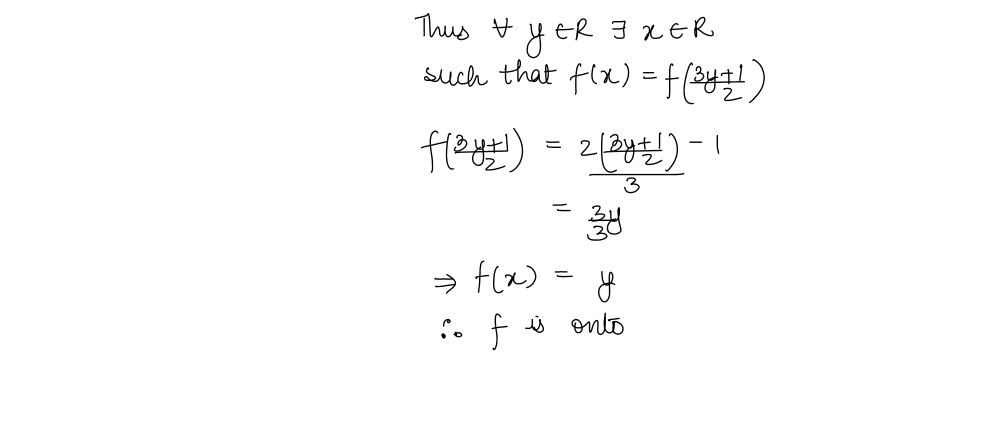 Thus ∀ y ∈ R ∃ x ∈ R
such that f(x) = f((3y+1)/2)
f((3y+1)/2) = (2((3y+1)/2) - 1)/3
= 3y/3
⇒ f(x) = y
∴ f is onto